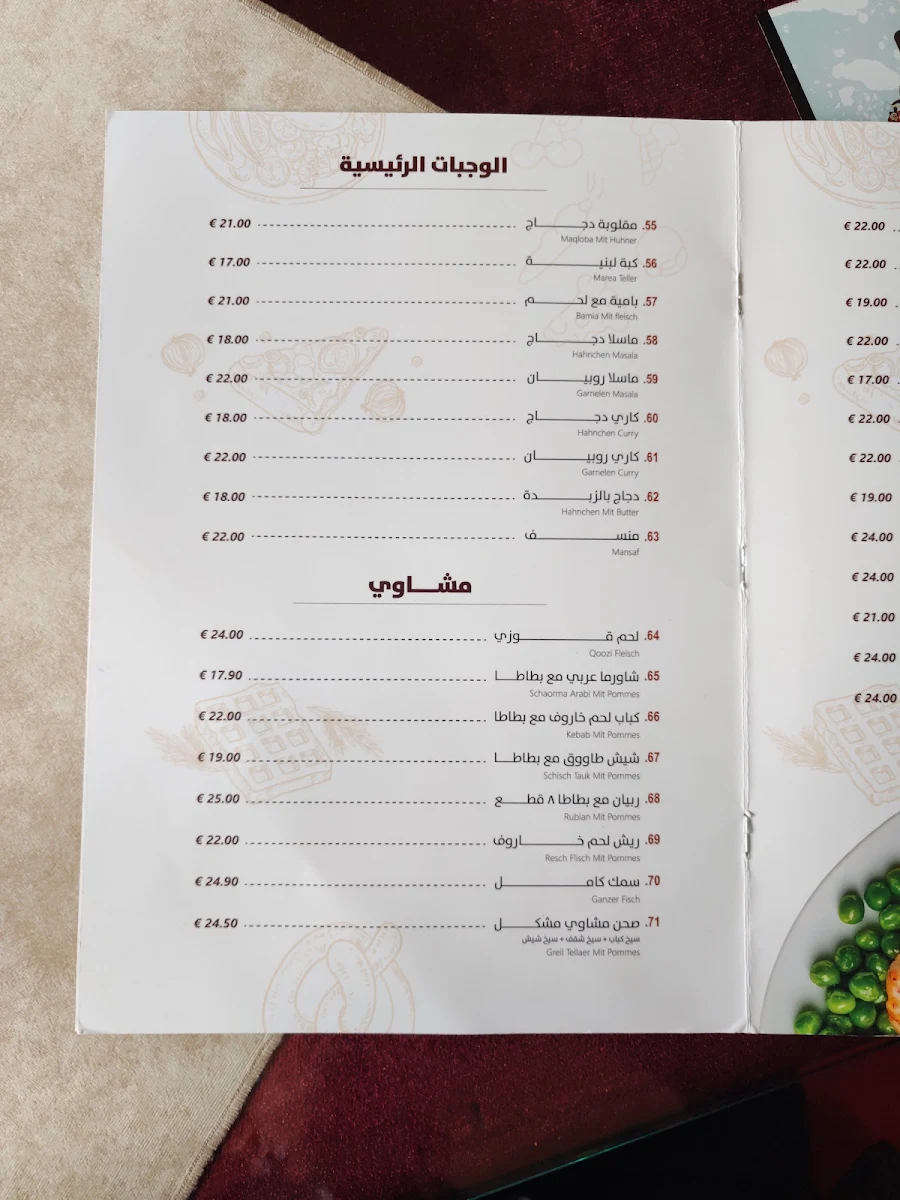 الوجبات الرئيسية
55. مقلوبة دجاج € 21.00
Maqloba Mit Huhner
56. كبة لبنية € 17.00
Marea Teller
57. بامية مع لحم € 21.00
Bamia Mit fleisch
58. ماسلا دجاج € 18.00
Hahnchen Masala
59. ماسلا روبيان € 22.00
Garnelen Masala
60. كاري دجاج € 18.00
Hahnchen Curry
61. كاري روبيان € 22.00
Garnelen Curry
62. دجاج بالزبدة € 18.00
Hahnchen Mit Butter
63. منسف € 22.00
Mansaf
مشاوي
64. لحم قوزي € 24.00
Qoozi Fleisch
65. شاورما عربي مع بطاطا € 17.90
Schaorma Arabi Mit Pommes
66. كباب لحم خاروف مع بطاطا € 22.00
Kebab Mit Pommes
67. شيش طاووق مع بطاطا € 19.00
Schisch Tauk Mit Pommes
68. ربيان مع بطاطا ٨ قطع € 25.00
Rubian Mit Pommes
69. ريش لحم خاروف € 22.00
Resch Flisch Mit Pommes
70. سمك كامل € 24.90
Ganzer Fisch
71. صحن مشاوي مشكل € 24.50
سيخ كباب + سيخ شقف + سيخ شيش
Greil Tellaer Mit Pommes
€ 22.00
€ 22.00
€ 19.00
€ 22.00
€ 17.00
€ 22.00
€ 22.00
€ 19.00
€ 24.00
€ 24.00
€ 21.00
€ 24.00
€ 24.00